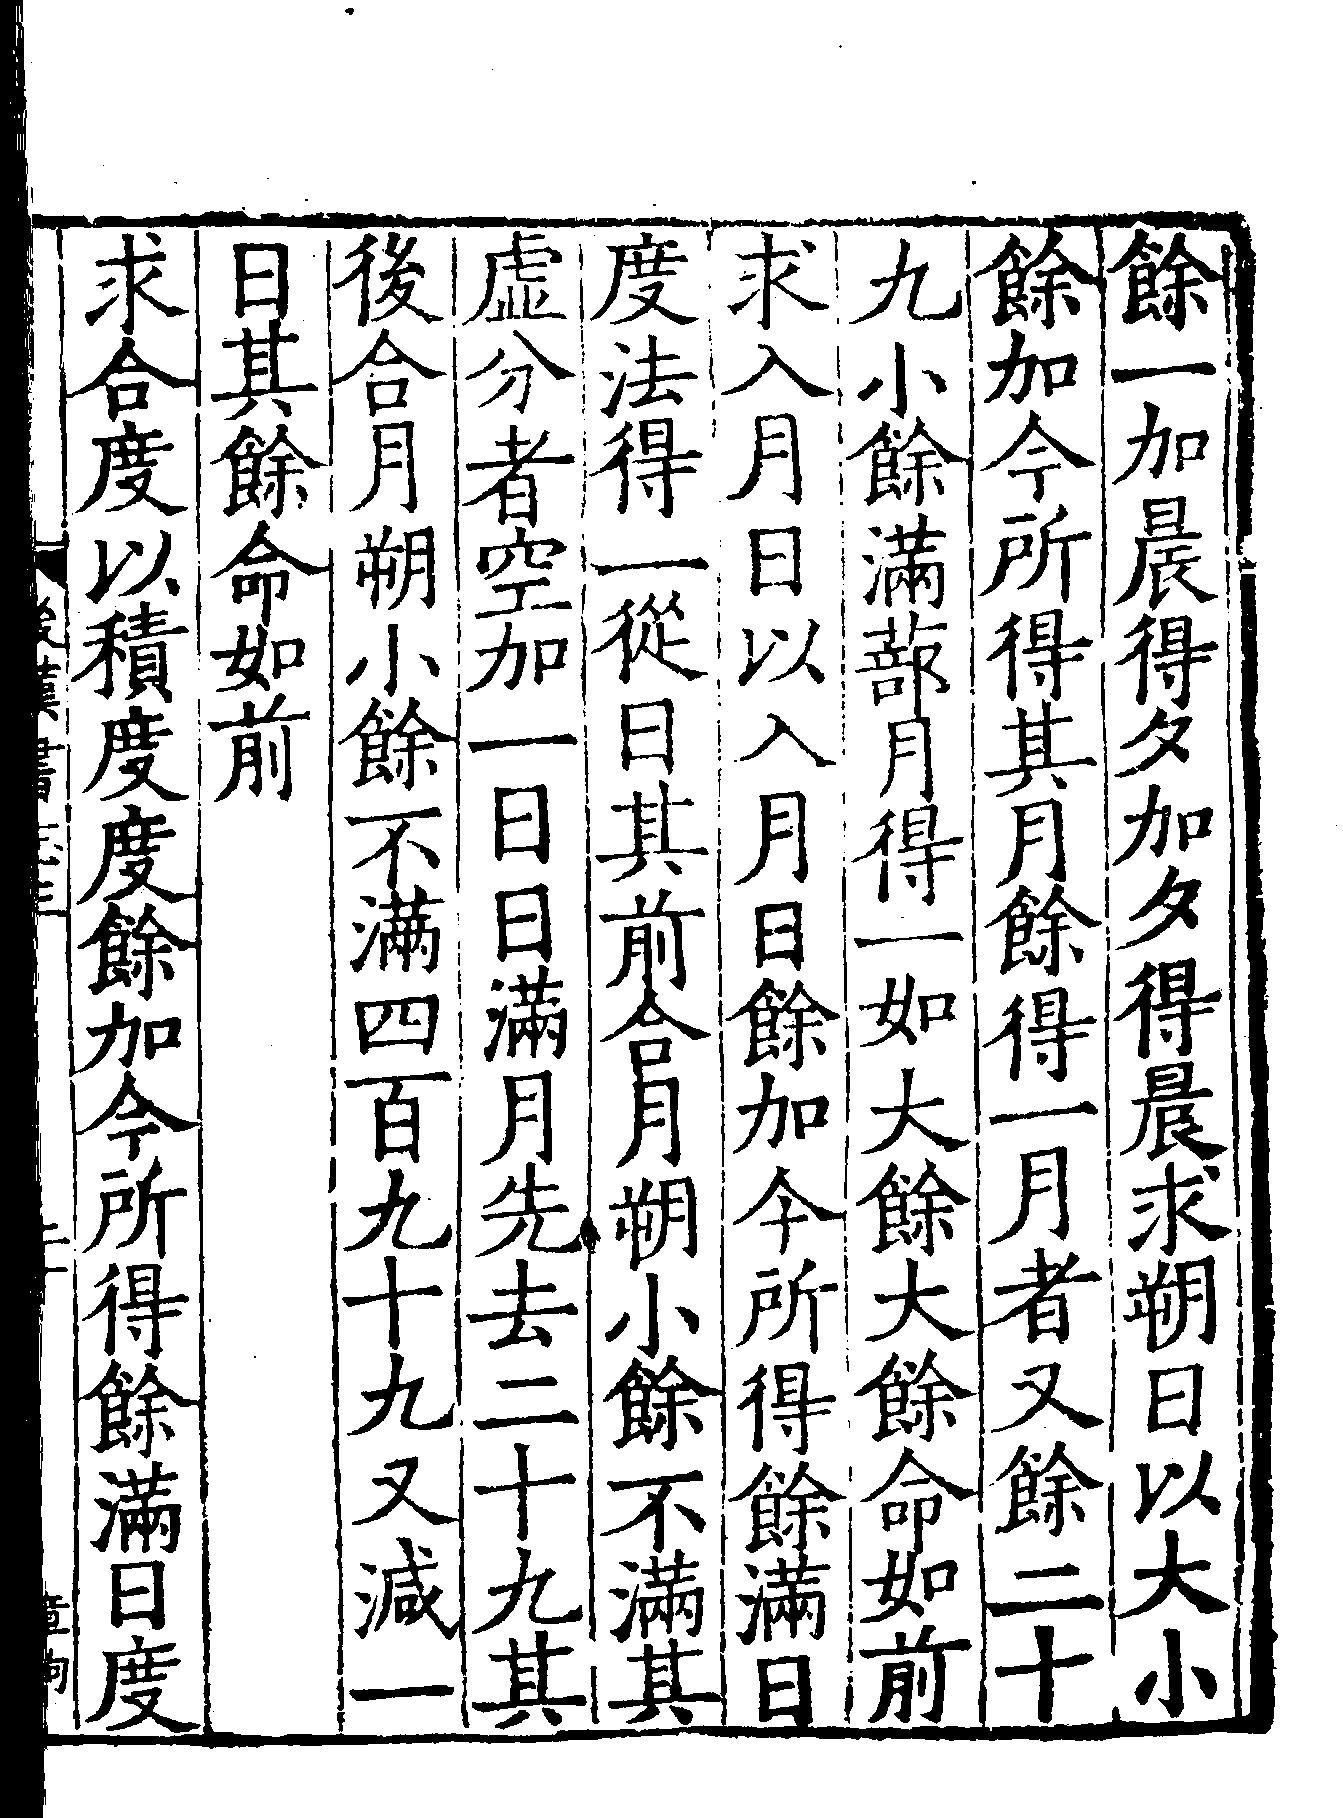 餘一加晨得夕加夕得晨求朔日以大小
餘加今所得其月餘得一月者又餘二十
九小餘滿蔀月得一如大餘大餘命如前
求入月日以入月日餘加今所得餘滿日
度法得一從日其前合月朔小餘不滿其
虛分者空加一日日滿月先去二十九其
後合月朔小餘不滿四百九十九又減一
日其餘命如前
求合度以積度度餘加今所得餘滿日度